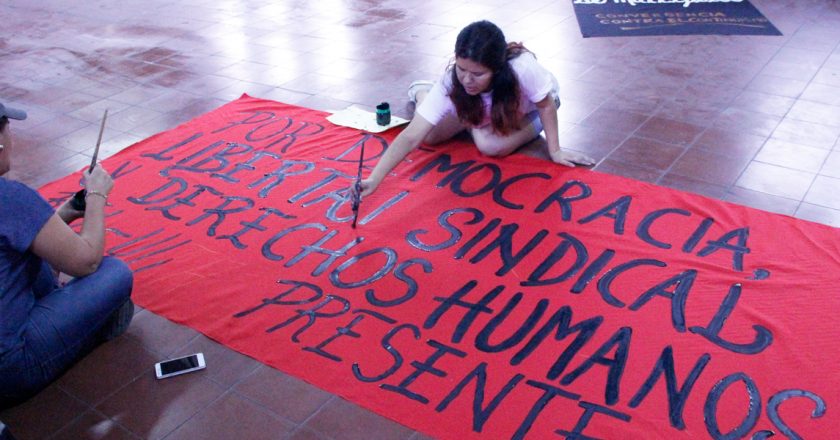 CONVERGENCIA
CONTRA EL CONTINUISMO
POR DEMOCRACIA,
LIBERTAD SINDICAL
Y DERECHOS HUMANOS
PRESENTE